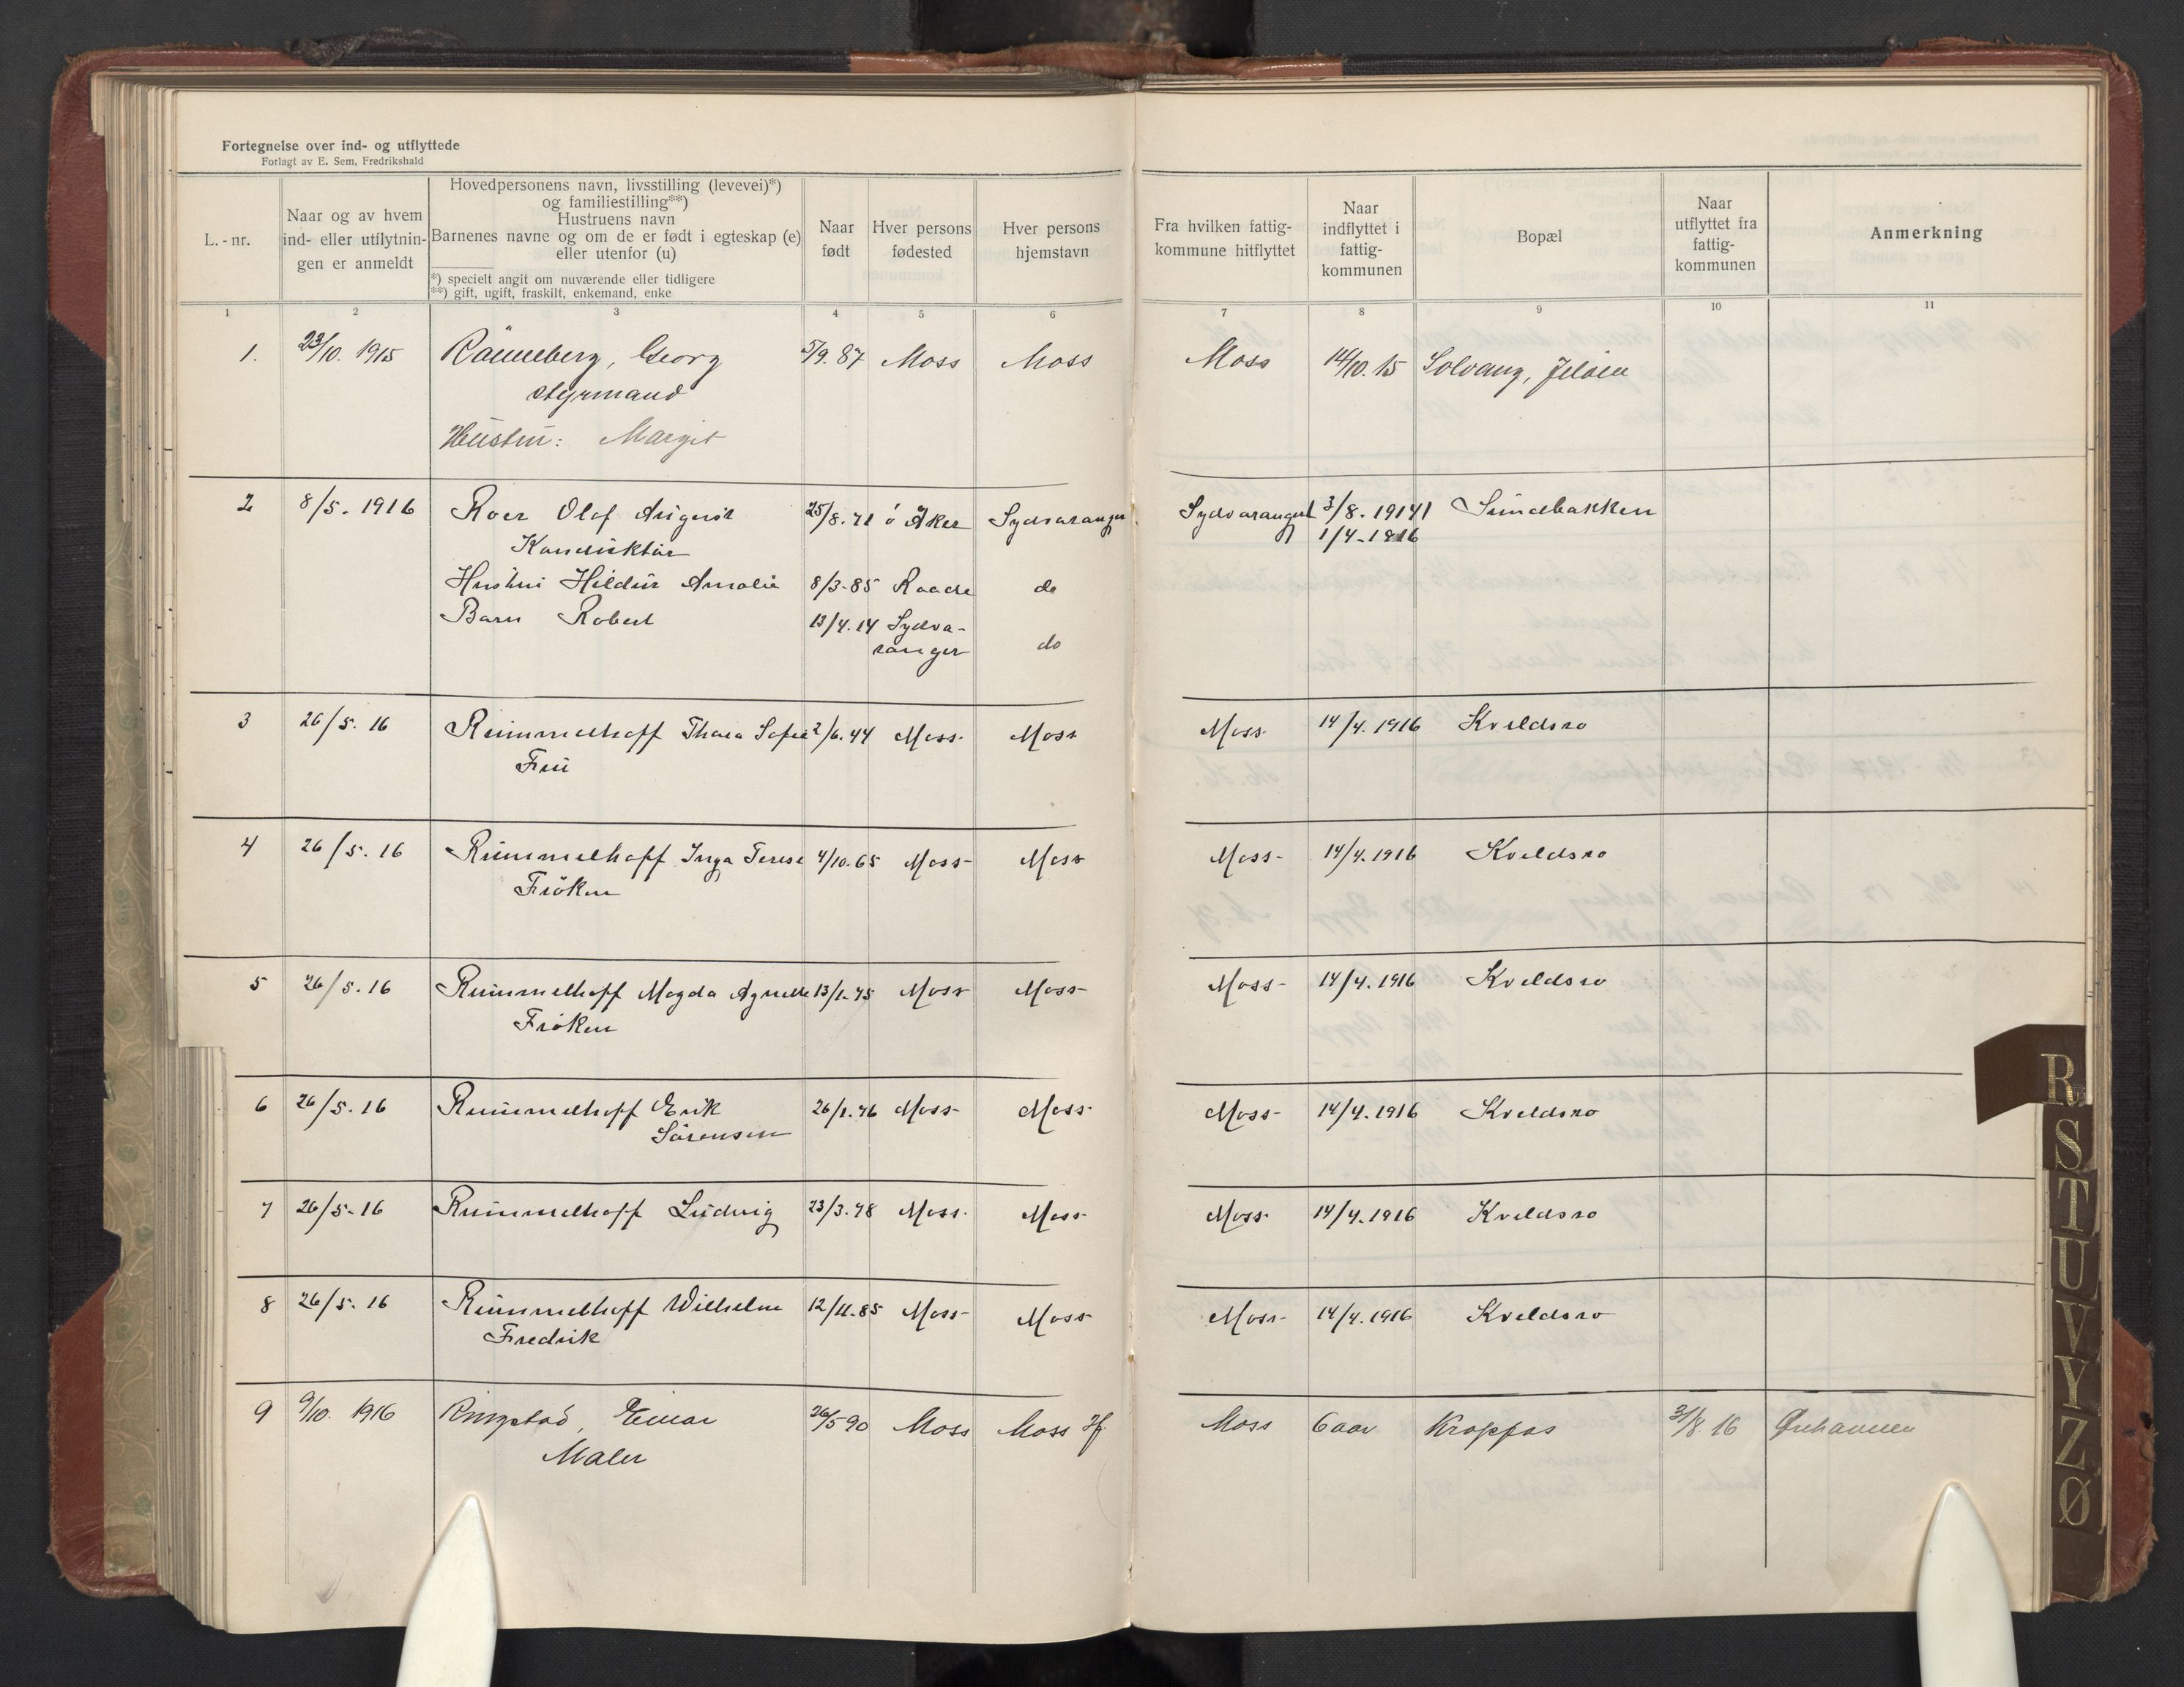 Fortegnelse over ind- og utflyttede
Forlagt av E. Sem, Fredrikshald
L.-nr.
Naar og av hvem
ind- eller utflytnin-
gen er anmeldt
Hovedpersonens navn, livsstilling (levevei)*)
og familiestilling**)
Hustruens navn
Barnenes navne og om de er født i egteskap (e)
eller utenfor (u)
*) specielt angit om nuværende eller tidligere
**) gift, ugift, fraskilt, enkemand, enke
Naar
født
Hver persons
fødested
Hver persons
hjemstavn
Fra hvilken fattig-
kommune hitflyttet
Naar
indflyttet i
fattig-
kommunen
Bopæl
Naar
utflyttet fra
fattig-
kommunen
Anmerkning
1 2 3 4 5 6 7 8 9 10 11
1. 23/10. 1915 Rönneberg, Georg 5/9.87 Moss Moss Moss 14/10.15 Solvang, Jeløen
Styrmand
Hustru: Margit
2 8/5. 1916 Roer Olof August 25/8.71 Aker Sydvaranger Sydvaranger 3/8. 1914 Sundbakken
Konduktör 1/4-1916
Hustru Hildur Amalie 8/3-85 Raade do
Barn Robert 13/4.14 Sydva-
ranger do
3 26/5. 16 Rummelhoff Thora Sofie 2/6.44 Moss Moss Moss 14/4.1916 Kveldsro
Fru
4 26/5. 16 Rummelhoff Inga Terese 4/10.65 Moss Moss Moss 14/4.1916 Kveldsro
Fröken
5 26/5. 16 Rummelhoff Magda Agnethe 13/1-75 Moss Moss Moss 14/4.1916 Kveldsro
Fröken
6 26/5. 16 Rummelhoff Erik 26/1.76 Moss Moss Moss 14/4.1916 Kveldsro
Sörensen
7 26/5-16 Rummelhoff Ludvig 23/3.78 Moss Moss Moss 14/4.1916 Kveldsro
8 26/5. 16 Rummelhoff Wilhelm 12/11.85 Moss Moss Moss 14/4.1916 Kveldsro
Fredrik
9 9/10. 1916 Ringstad, Einar 26/5 90 Moss Moss Moss 6 aar Kroppas 31/8.16
Maler
R
S
T
U
V
Y
Z
Ø